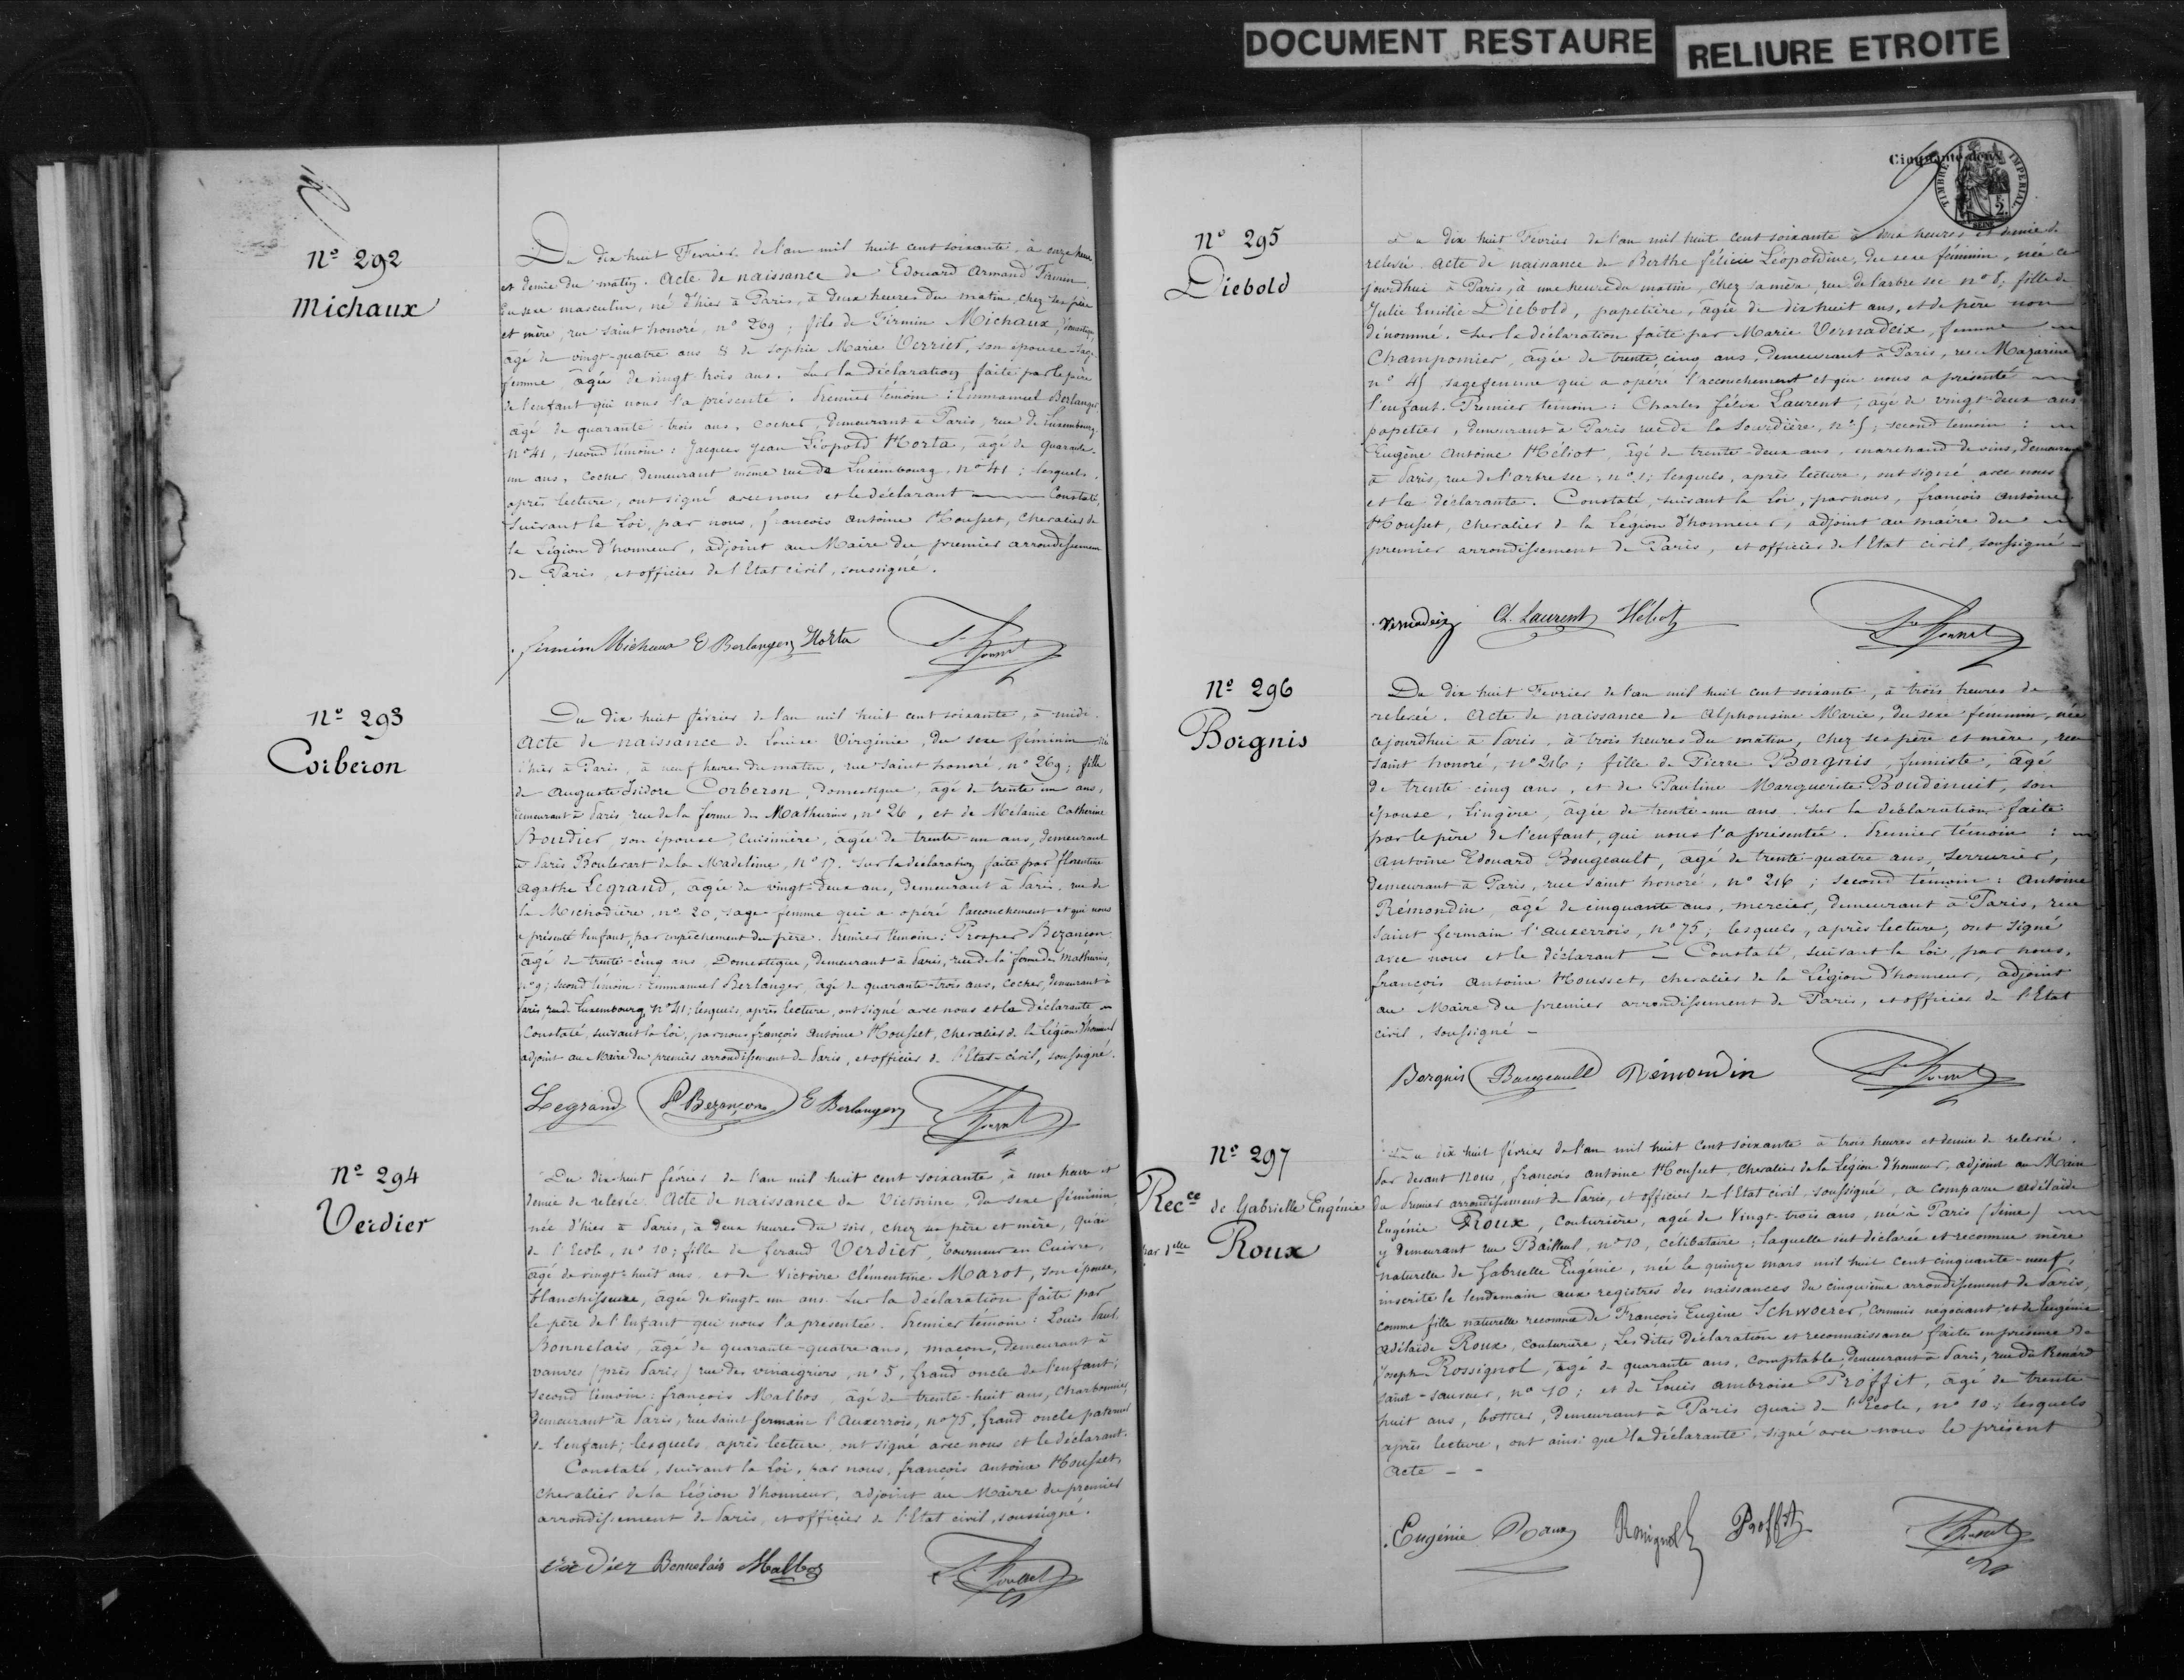 DOCUMENT RESTAURE
RELIURE ETROITE
Nº 292
Michaux
Du dix huit Fevrier de l'an mil huit cent soixante à onze heures
et demie du matin. Acte de naissance de Edouard Armand Firmin
du sexe masculin, né d'hier à Paris, à deux heures du matin, chez ses père
et mère, rue saint honoré, nº 269; fils de Firmin Michaux, Domestique,
âgé de vingt-quatre ans & de Sophie Marie Verrier, son épouse Sage
femme, âgée de vingt trois ans. Sur la déclaration faite par le père
de l'enfant qui nous l'a présenté. Premier témoin: Emmanuel Berlanger
âgé de quarante-trois ans, cocher, demeurant à Paris, rue de Luxembourg,
nº 41, second témoin: Jacques Jean Léopold Horta, âgé de quarante-
un ans, cocher demeurant même rue de Luxembourg, nº 41; lesquels,
après lecture, ont signé avec nous et le déclarant Constaté,
Suivant la Loi, par nous, françois antoine Housset, Chevalier de
la Légion d'honneur, adjoint au Maire du premier arrondissement
de Paris, et officier de l'Etat civil, soussigné.
firmin Michaux E Berlanger Horta
Nº 293
Corberon
Du dix huit février de l'an mil huit cent soixante, à midi.
Acte de naissance de Louise Virginie, du sexe féminin née
d'hier à Paris, à neuf heures du matin, rue saint honoré, nº 269; fille
de Auguste Isidore Corberon, Domestique, âgé de trente un ans,
demeurant à Paris rue de la ferme des Mathurins, nº 26, et de Mélanie Catherine
Boudier, son épouse, Cuisinière, âgée de trente-un ans, demeurant
à Paris Boulevart de la Madeleine, nº 17. Sur la déclaration faite par florentine
Agathe Legrand, âgée de vingt-deux ans, demeurant à Paris, rue de
la Michodière, nº 20, sage-femme qui a opéré l'accouchement et qui nous
a présenté l'enfant, par empêchement du père. Premier témoin: Prosper Bezançon
âgé de trente-cinq ans Domestique, demeurant à Paris, rue de la ferme des Mathurins,
nº 9; second témoin: Emmanuel Berlanger, âgé de quarante-trois ans, cocher, demeurant à
Paris, rue de Luxembourg, nº 41; lesquels, après lecture, ont signé avec nous et la déclarante
Constaté, suivant la loi, par nous françois antoine Housset, chevalier de la Légion d'honneur
adjoint au Maire du premier arrondissement de Paris, et officier de l'Etat-civil, soussigné.
Legrand P Bezançon E Berlanger
Nº 294
Verdier
Du dix huit février de l'an mil huit cent soixante, à une heure et
demie de relevée. Acte de naissance de Victorine, du sexe féminin
née d'hier à Paris, à deux heures du soir, chez ses père et mère, quai
de l'Ecole, nº 10; fille de feraud Verdier, tourneur en Cuivre,
âgé de vingt-huit ans et de Victoire clémentine Marot, son épouse,
blanchisseuse, âgée de vingt-un ans. Sur la déclaration faite par
le père de l'Enfant qui nous l'a présentée. Premier témoin: Louis Paul
Bonnelais, âgé de quarante-quatre ans, maçon, demeurant à
vanves (près Paris) rue des vinaigriers, nº 5, grand oncle de l'enfant;
second témoin: françois Malbos, âgé de trente-huit ans, charbonnier,
demeurant à Paris, rue saint germain l'Auxerrois, nº 75, grand oncle paternel
de l'enfant; lesquels, après lecture, ont signé avec nous et le déclarant.
Constaté, suivant la loi, par nous, françois antoine Housset,
chevalier de la Légion d'honneur, adjoint au Maire du premier
arrondissement de Paris, et officier de l'Etat civil, soussigné.
verdier Bonnelais Malbos
Cinquante-deux
TIMBRE IMPERIAL
2
Nº 295
Diebold
Du dix huit Fevrier de l'an mil huit cent soixante à deux heures et demie de
relevée. Acte de naissance de Berthe félicie Léopoldine, du sexe féminin, née ce
jourdhui à Paris, à une heure du matin, chez sa mère, rue de l'arbre sec nº 8; fille de
Julie Emilie Diebold, papetière, âgée de dix huit ans, et de père non
dénommé. Sur la déclaration faite par Marie Vernadeix, femme
Champomier, âgée de trente cinq ans, demeurant à Paris, rue Mazarine
nº 45 sagefemme qui a opéré l'accouchement et qui nous a présenté
l'enfant. Premier témoin: Charles félix Laurent, âgé de vingt-deux ans
papetier, demeurant à Paris rue de la Sourdière, nº 5; second témoin:
Eugène Antoine Héliot, âgé de trente-deux ans, marchand de vins, demeurant
à Paris, rue de l'arbre sec, nº 1; lesquels, après lecture, ont signé avec nous
et la déclarante. Constaté, suivant la Loi, par nous, françois antoine
Housset, chevalier de la Légion d'honneur, adjoint au maire du
premier arrondissement de Paris, et officier de l'Etat civil, soussigné
Vernadeix Ch. Laurent Héliot
Nº 296
Borgnis
Du dix huit Fevrier de l'an mil huit cent soixante, à trois heures de
relevée. Acte de naissance de Alphonsine Marie, du sexe féminin, née
cejourdhui à Paris, à trois heures du matin, chez ses père et mère, rue
saint honoré, nº 216; fille de Pierre Borgnis, fumiste, âgé
de trente cinq ans, et de Pauline Marguerite Boudenuit, son
épouse, Lingère, âgée de trente-un ans. Sur la déclaration faite
par le père de l'enfant, qui nous l'a présentée. Premier témoin:
Antoine Edouard Bougeault, âgé de trente-quatre ans, serrurier,
demeurant à Paris, rue saint honoré, nº 216; second témoin: Antoine
Rémondin, âgé de cinquante ans, mercier, demeurant à Paris, rue
saint germain l'auxerrois, nº 75; lesquels, après lecture, ont signé
avec nous et le déclarant - Constaté, suivant la loi, par nous,
françois antoine Housset, chevalier de la Légion d'honneur, adjoint
au Maire du premier arrondissement de Paris, et officier de l'Etat
civil, soussigné -
Borgnis Bougeault Rémondin
Nº 297
Recce de Gabrielle Eugénie
par dlle Roux
Du dix huit février de l'an mil huit cent soixante à trois heures et demie de relevée.
Par devant nous, françois antoine Housset, chevalier de la Légion d'honneur, adjoint au Maire
du Premier arrondissement de Paris, et officier de l'Etat civil, soussigné, a comparu adélaïde
Eugénie Roux, Couturière, âgée de Vingt-trois ans, née à Paris (Seine)
y demeurant rue Bailleul, nº 10, célibataire; laquelle s'est déclarée et reconnue mère
naturelle de Gabrielle Eugénie, née le quinze mars mil huit cent cinquante-neuf,
inscrite le lendemain aux registres des naissances du cinquième arrondissement de Paris,
comme fille naturelle reconnue de François Eugène Schwoerer, Commis négociant et de Eugénie
adélaïde Roux, couturière; Les dites déclaration et reconnaissance faites en présence de
Joseph Rossignol, âgé de quarante ans, comptable, demeurant à Paris, rue du Renard
saint-sauveur, nº 10; et de Louis ambroise Proffit, âgé de trente-
huit ans, bottier, demeurant à Paris quai de l'Ecole, nº 10; lesquels
après lecture, ont ainsi que la déclarante signé avec nous le présent
Acte - -
Eugénie Roux Rossignol Proffit